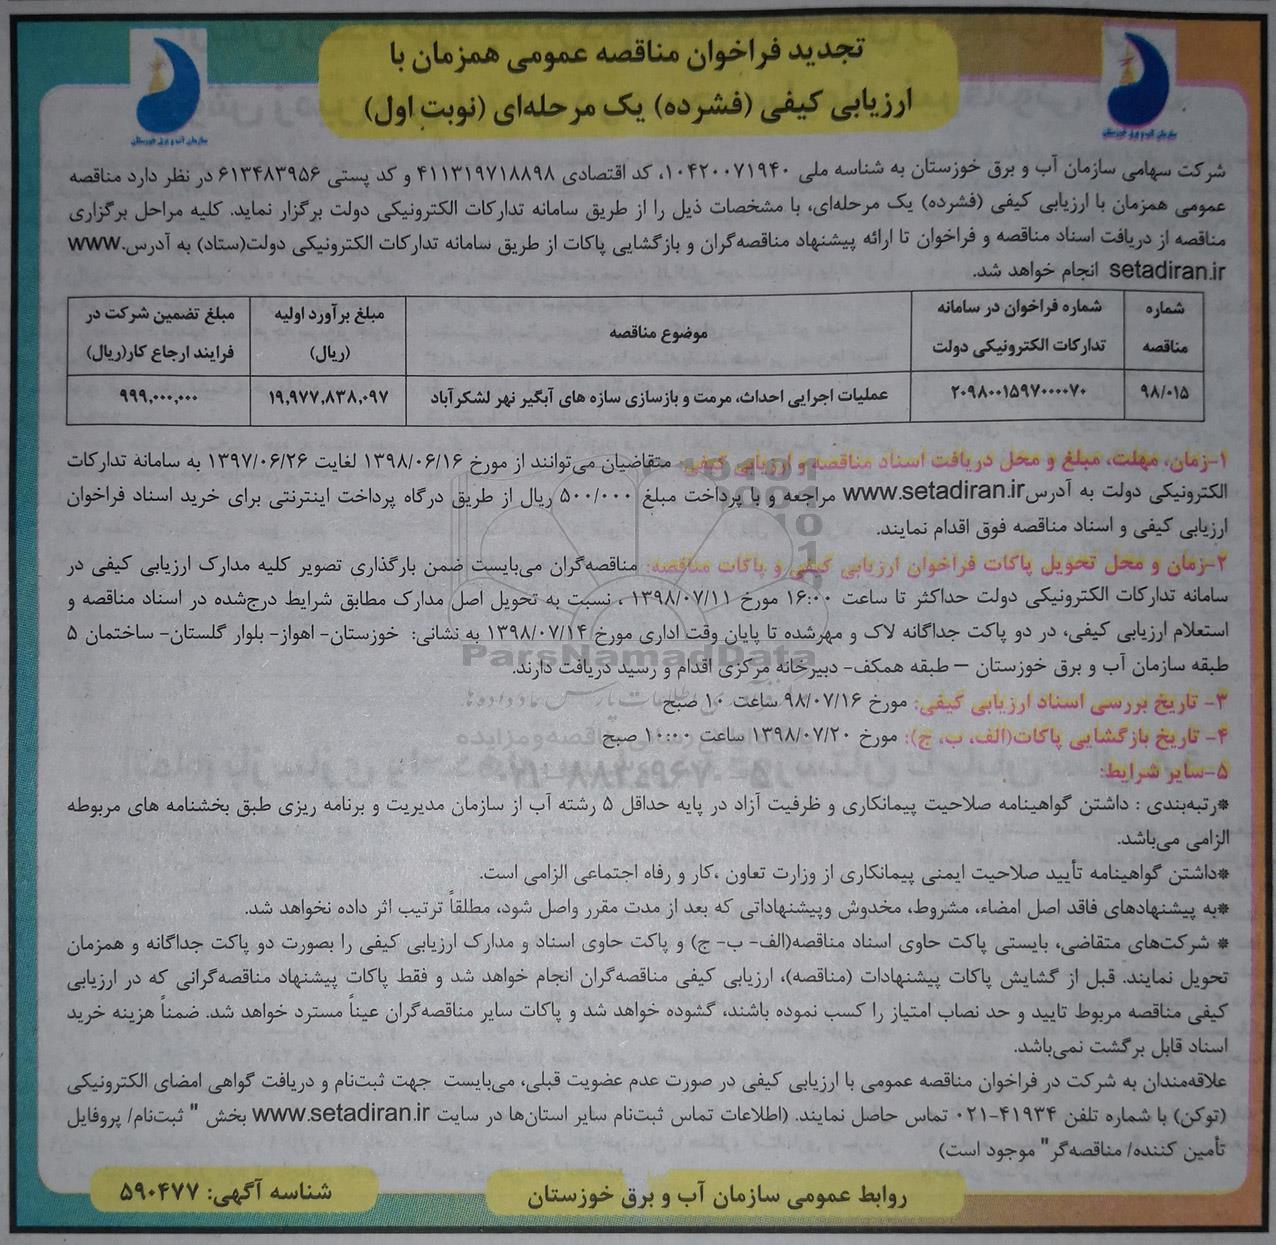 تجدید فراخوان مناقصه عمومی همزمان با
ارزیابی کیفی (فشرده) یک مرحله‌ای (نوبت اول)
سازمان آب و برق خوزستان
سازمان آب و برق خوزستان
شرکت سهامی سازمان آب و برق خوزستان به شناسه ملی ۱۰۴۲۰۰۷۱۹۴۰، کد اقتصادی ۴۱۱۳۱۹۷۱۸۸۹۸ و کد پستی ۶۱۳۴۸۳۹۵۶ در نظر دارد مناقصه
عمومی همزمان با ارزیابی کیفی (فشرده) یک مرحله‌ای، با مشخصات ذیل را از طریق سامانه تدارکات الکترونیکی دولت برگزار نماید. کلیه مراحل برگزاری
مناقصه از دریافت اسناد مناقصه و فراخوان تا ارائه پیشنهاد مناقصه‌گران و بازگشایی پاکات از طریق سامانه تدارکات الکترونیکی دولت(ستاد) به آدرس www.
setadiran.ir انجام خواهد شد.
شماره مناقصه | شماره فراخوان در سامانه تدارکات الکترونیکی دولت | موضوع مناقصه | مبلغ برآورد اولیه (ریال) | مبلغ تضمین شرکت در فرایند ارجاع کار(ریال)
۹۸/۰۱۵ | ۲۰۹۸۰۰۱۵۹۷۰۰۰۰۷۰ | عملیات اجرایی احداث، مرمت و بازسازی سازه های آبگیر نهر لشکرآباد | ۱۹,۹۷۷,۸۳۸,۰۹۷ | ۹۹۹,۰۰۰,۰۰۰
۱-زمان، مهلت، مبلغ و محل دریافت اسناد مناقصه و ارزیابی کیفی: متقاضیان می‌توانند از مورخ ۱۳۹۸/۰۶/۱۶ لغایت ۱۳۹۷/۰۶/۲۶ به سامانه تدارکات
الکترونیکی دولت به آدرس www.setadiran.ir مراجعه و با پرداخت مبلغ ۵۰۰/۰۰۰ ریال از طریق درگاه پرداخت اینترنتی برای خرید اسناد فراخوان
ارزیابی کیفی و اسناد مناقصه فوق اقدام نمایند.
۲-زمان و محل تحویل پاکات فراخوان ارزیابی کیفی و پاکات مناقصه: مناقصه‌گران می‌بایست ضمن بارگذاری تصویر کلیه مدارک ارزیابی کیفی در
سامانه تدارکات الکترونیکی دولت حداکثر تا ساعت ۱۶:۰۰ مورخ ۱۳۹۸/۰۷/۱۱ ، نسبت به تحویل اصل مدارک مطابق شرایط درج‌شده در اسناد مناقصه و
استعلام ارزیابی کیفی، در دو پاکت جداگانه لاک و مهرشده تا پایان وقت اداری مورخ ۱۳۹۸/۰۷/۱۴ به نشانی: خوزستان- اهواز- بلوار گلستان- ساختمان ۵
طبقه سازمان آب و برق خوزستان – طبقه همکف- دبیرخانه مرکزی اقدام و رسید دریافت دارند.
ParsNamadData
۳- تاریخ بررسی اسناد ارزیابی کیفی: مورخ ۹۸/۰۷/۱۶ ساعت ۱۰ صبح
۴- تاریخ بازگشایی پاکات(الف، ب، ج): مورخ ۱۳۹۸/۰۷/۲۰ ساعت ۱۰:۰۰ صبح
۵-سایر شرایط:
*رتبه‌بندی : داشتن گواهینامه صلاحیت پیمانکاری و ظرفیت آزاد در پایه حداقل ۵ رشته آب از سازمان مدیریت و برنامه ریزی طبق بخشنامه های مربوطه
الزامی می‌باشد.
*داشتن گواهینامه تأیید صلاحیت ایمنی پیمانکاری از وزارت تعاون ،کار و رفاه اجتماعی الزامی است.
*به پیشنهادهای فاقد اصل امضاء، مشروط، مخدوش وپیشنهاداتی که بعد از مدت مقرر واصل شود، مطلقاً ترتیب اثر داده نخواهد شد.
* شرکت‌های متقاضی، بایستی پاکت حاوی اسناد مناقصه(الف- ب- ج) و پاکت حاوی اسناد و مدارک ارزیابی کیفی را بصورت دو پاکت جداگانه و همزمان
تحویل نمایند. قبل از گشایش پاکات پیشنهادات (مناقصه)، ارزیابی کیفی مناقصه‌گران انجام خواهد شد و فقط پاکات پیشنهاد مناقصه‌گرانی که در ارزیابی
کیفی مناقصه مربوط تایید و حد نصاب امتیاز را کسب نموده باشند، گشوده خواهد شد و پاکات سایر مناقصه‌گران عیناً مسترد خواهد شد. ضمناً هزینه خرید
اسناد قابل برگشت نمی‌باشد.
علاقه‌مندان به شرکت در فراخوان مناقصه عمومی با ارزیابی کیفی در صورت عدم عضویت قبلی، می‌بایست جهت ثبت‌نام و دریافت گواهی امضای الکترونیکی
(توکن) با شماره تلفن ۴۱۹۳۴-۰۲۱ تماس حاصل نمایند. (اطلاعات تماس ثبت‌نام سایر استان‌ها در سایت www.setadiran.ir بخش " ثبت‌نام/ پروفایل
تأمین کننده/ مناقصه‌گر" موجود است)
روابط عمومی سازمان آب و برق خوزستان
شناسه آگهی: ۵۹۰۴۷۷